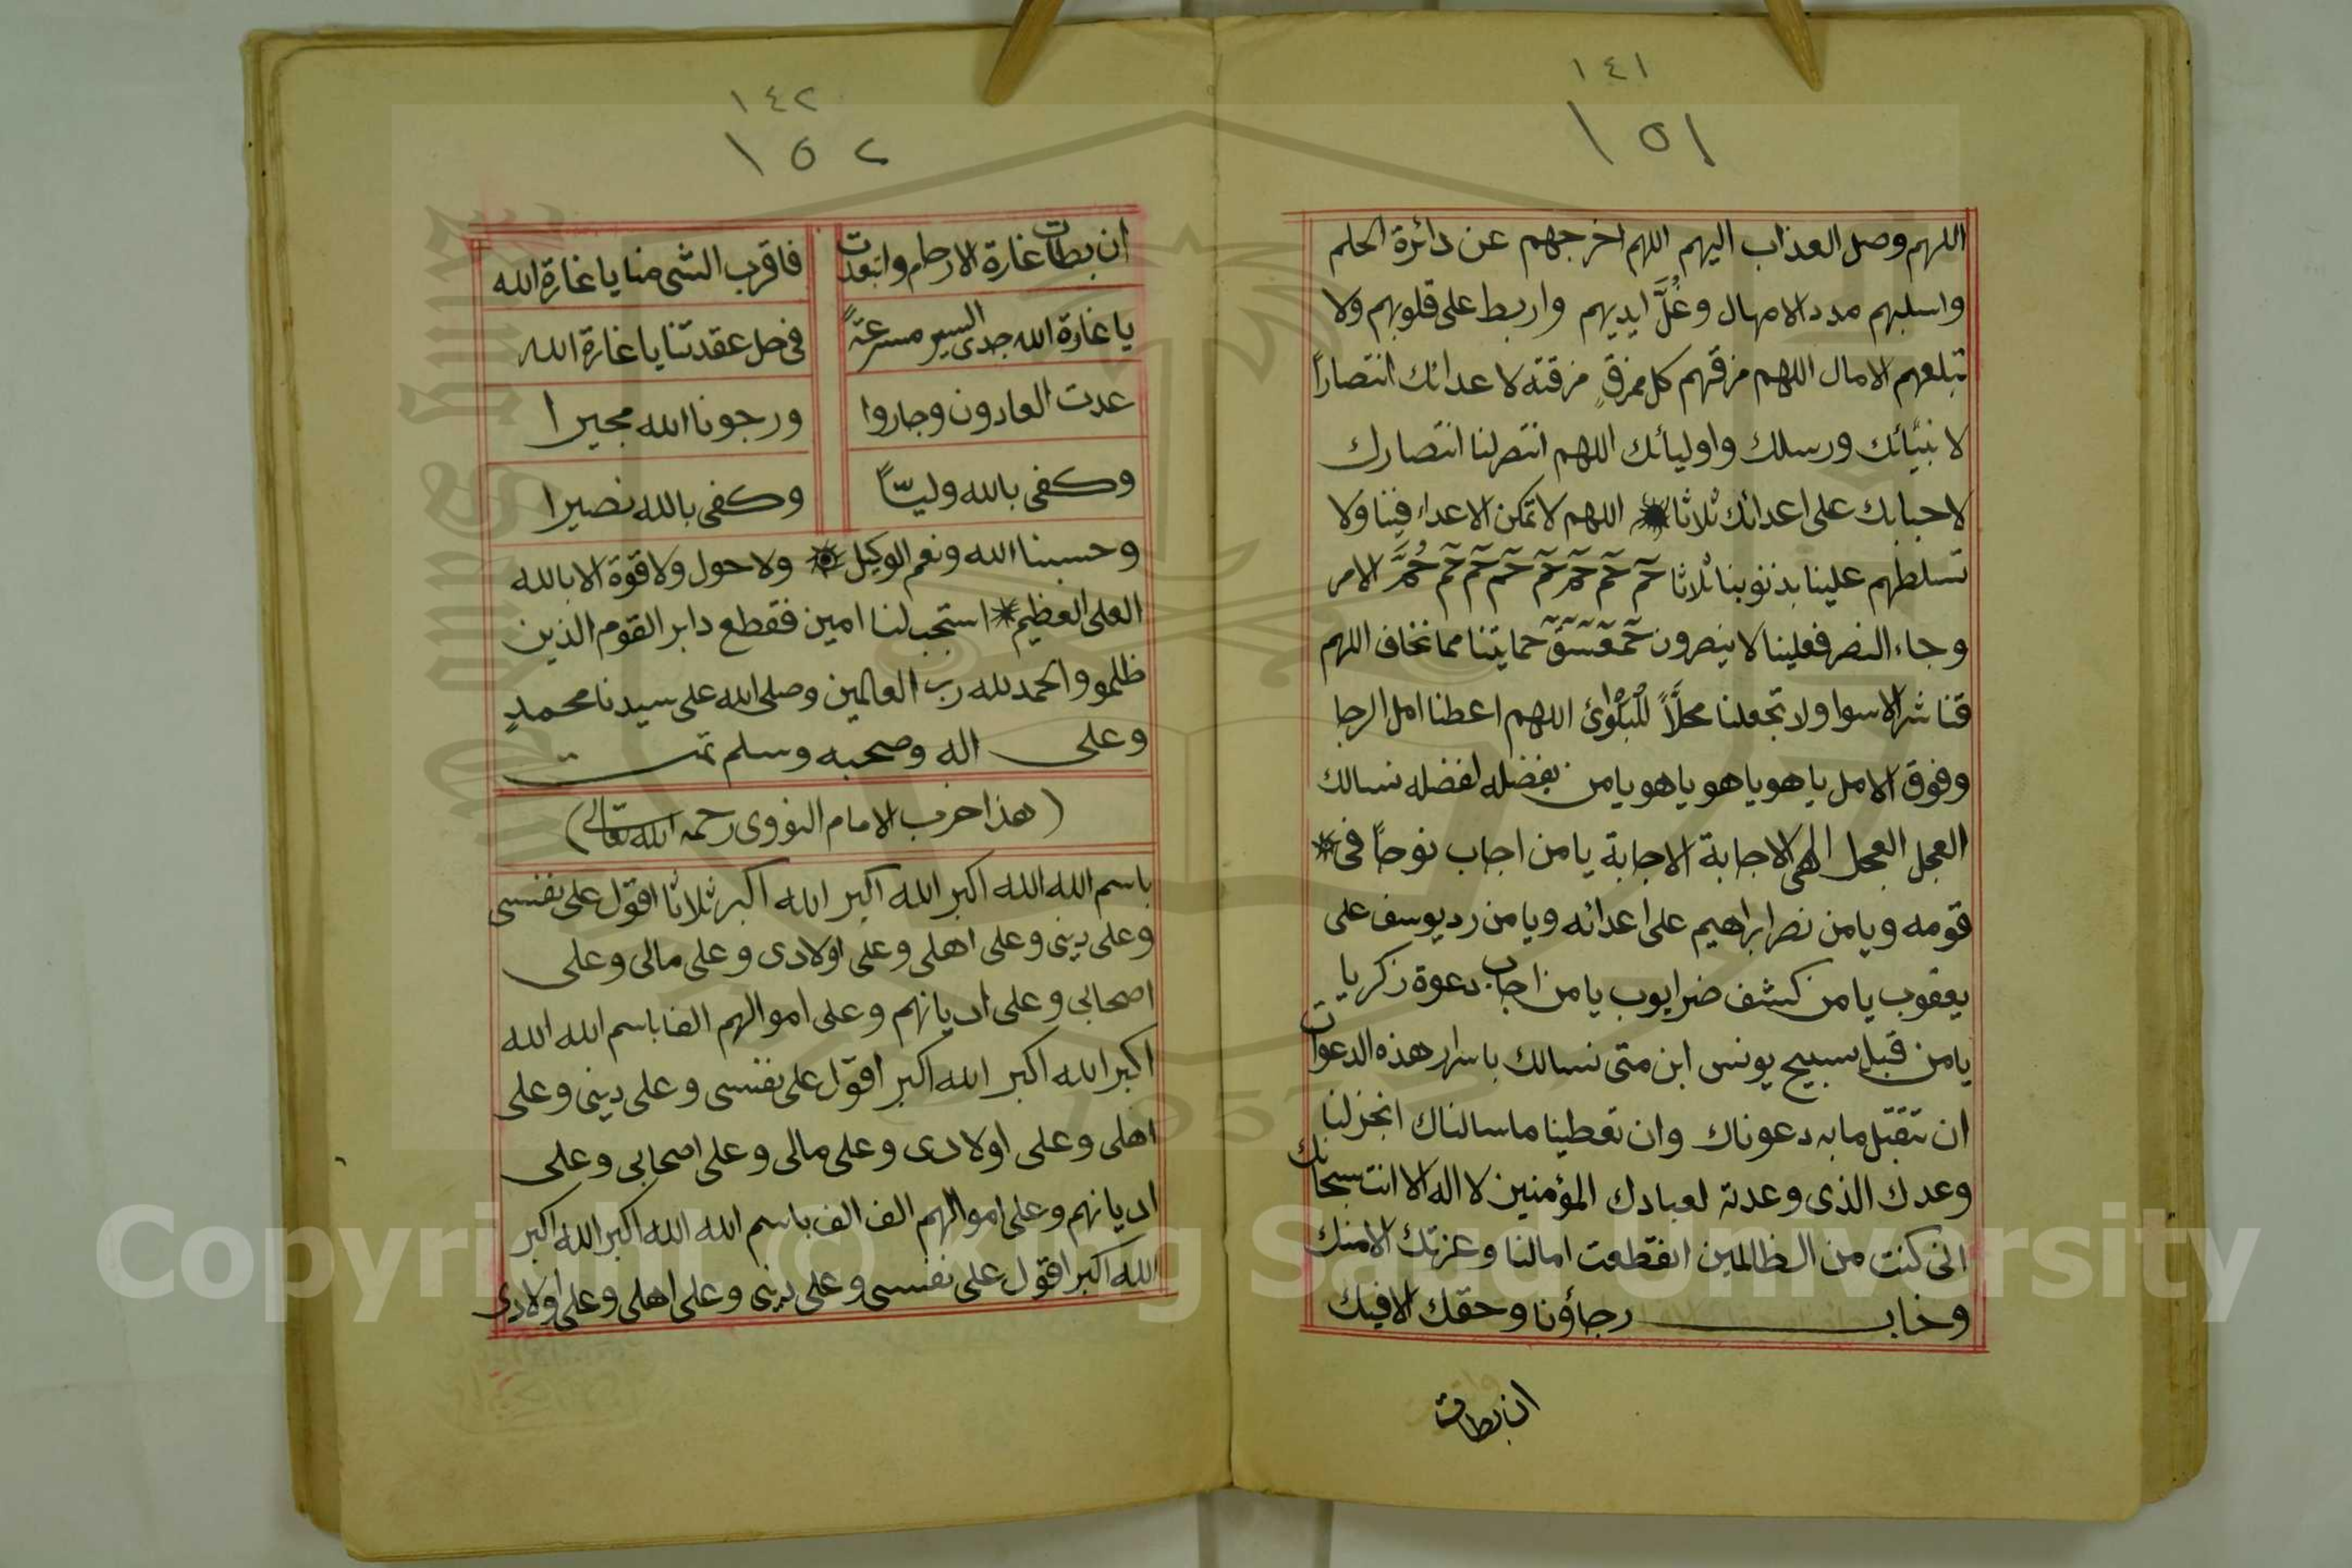 ١٤١
١٥١
اللهم وصل العذاب اليهم اللهم اخرجهم عن دائرة الحلم
واسلبهم مدد الامهال وغُلَّ ايديهم واربط على قلوبهم ولا
تبلغهم الامال اللهم مزقهم كل ممزقٍ مزقته لاعدائك انتصاراً
لانبيائك ورسلك واوليائك اللهم انتصر لنا انتصارك
لاحبابك على اعدائك ثلاثا اللهم لا تمكن الاعداء فينا ولا
تسلطهم علينا بذنوبنا ثلاثا حم حم حم حم حم حم حم حُمَّ الامر
وجاء النصر فعلينا لا ينصرون حمعسق حمايتنا مما نخاف اللهم
قنا شر الاسوا ولا تجعلنا محلاً للبلوى اللهم اعطنا امل الرجا
وفوق الامل يا هو يا هو يا هو يا من بفضله لفضله نسالك
العجل العجل الهى الاجابة الاجابة يا من اجاب نوحاً فى
قومه ويا من نصر ابراهيم على اعدائه ويا من رد يوسف على
يعقوب يا من كشف ضر ايوب يا من اجاب دعوة زكريا
يا من قبل سبيح يونس ابن متى نسالك باسرار هذه الدعوات
ان تتقبل ما به دعوناك وان تعطينا ما سالناك انجز لنا
وعدك الذى وعدته لعبادك المؤمنين لا اله الا انت سبحانك
انى كنت من الظالمين انقطعت امالنا وعزتك الا منك
وخاب رجاؤنا وحقك الا فيك
ان بطات
١٤٢
١٥٢
ان بطات غارة الارحام وابتعدت فاقرب الشى منا يا غارة الله
يا غارة الله جدى السير مسرعةً فى حل عقدتنا يا غارة الله
عدت العادون وجاروا ورجونا الله مجيرا
وكفى بالله وليّاً وكفى بالله نصيرا
وحسبنا الله ونعم الوكيل ولا حول ولا قوة الا بالله
العلى العظيم استجب لنا امين فقطع دابر القوم الذين
ظلمو والحمد لله رب العالمين وصلى الله على سيدنا محمدٍ
وعلى اله وصحبه وسلم تمت
(هذا حزب الامام النووى رحمه الله تعالى)
باسم الله الله اكبر الله اكبر الله اكبر ثلاثا اقول على نفسى
وعلى دينى وعلى اهلى وعلى اولادى وعلى مالى وعلى
اصحابى وعلى اديانهم وعلى اموالهم الفا باسم الله الله
اكبر الله اكبر الله اكبر اقول على نفسى وعلى دينى وعلى
اهلى وعلى اولادى وعلى مالى وعلى اصحابى وعلى
اديانهم وعلى اموالهم الف الف باسم الله الله اكبر الله اكبر
الله اكبر اقول على نفسى وعلى دينى وعلى اهلى وعلى اولادى
Copyright © King Saud University